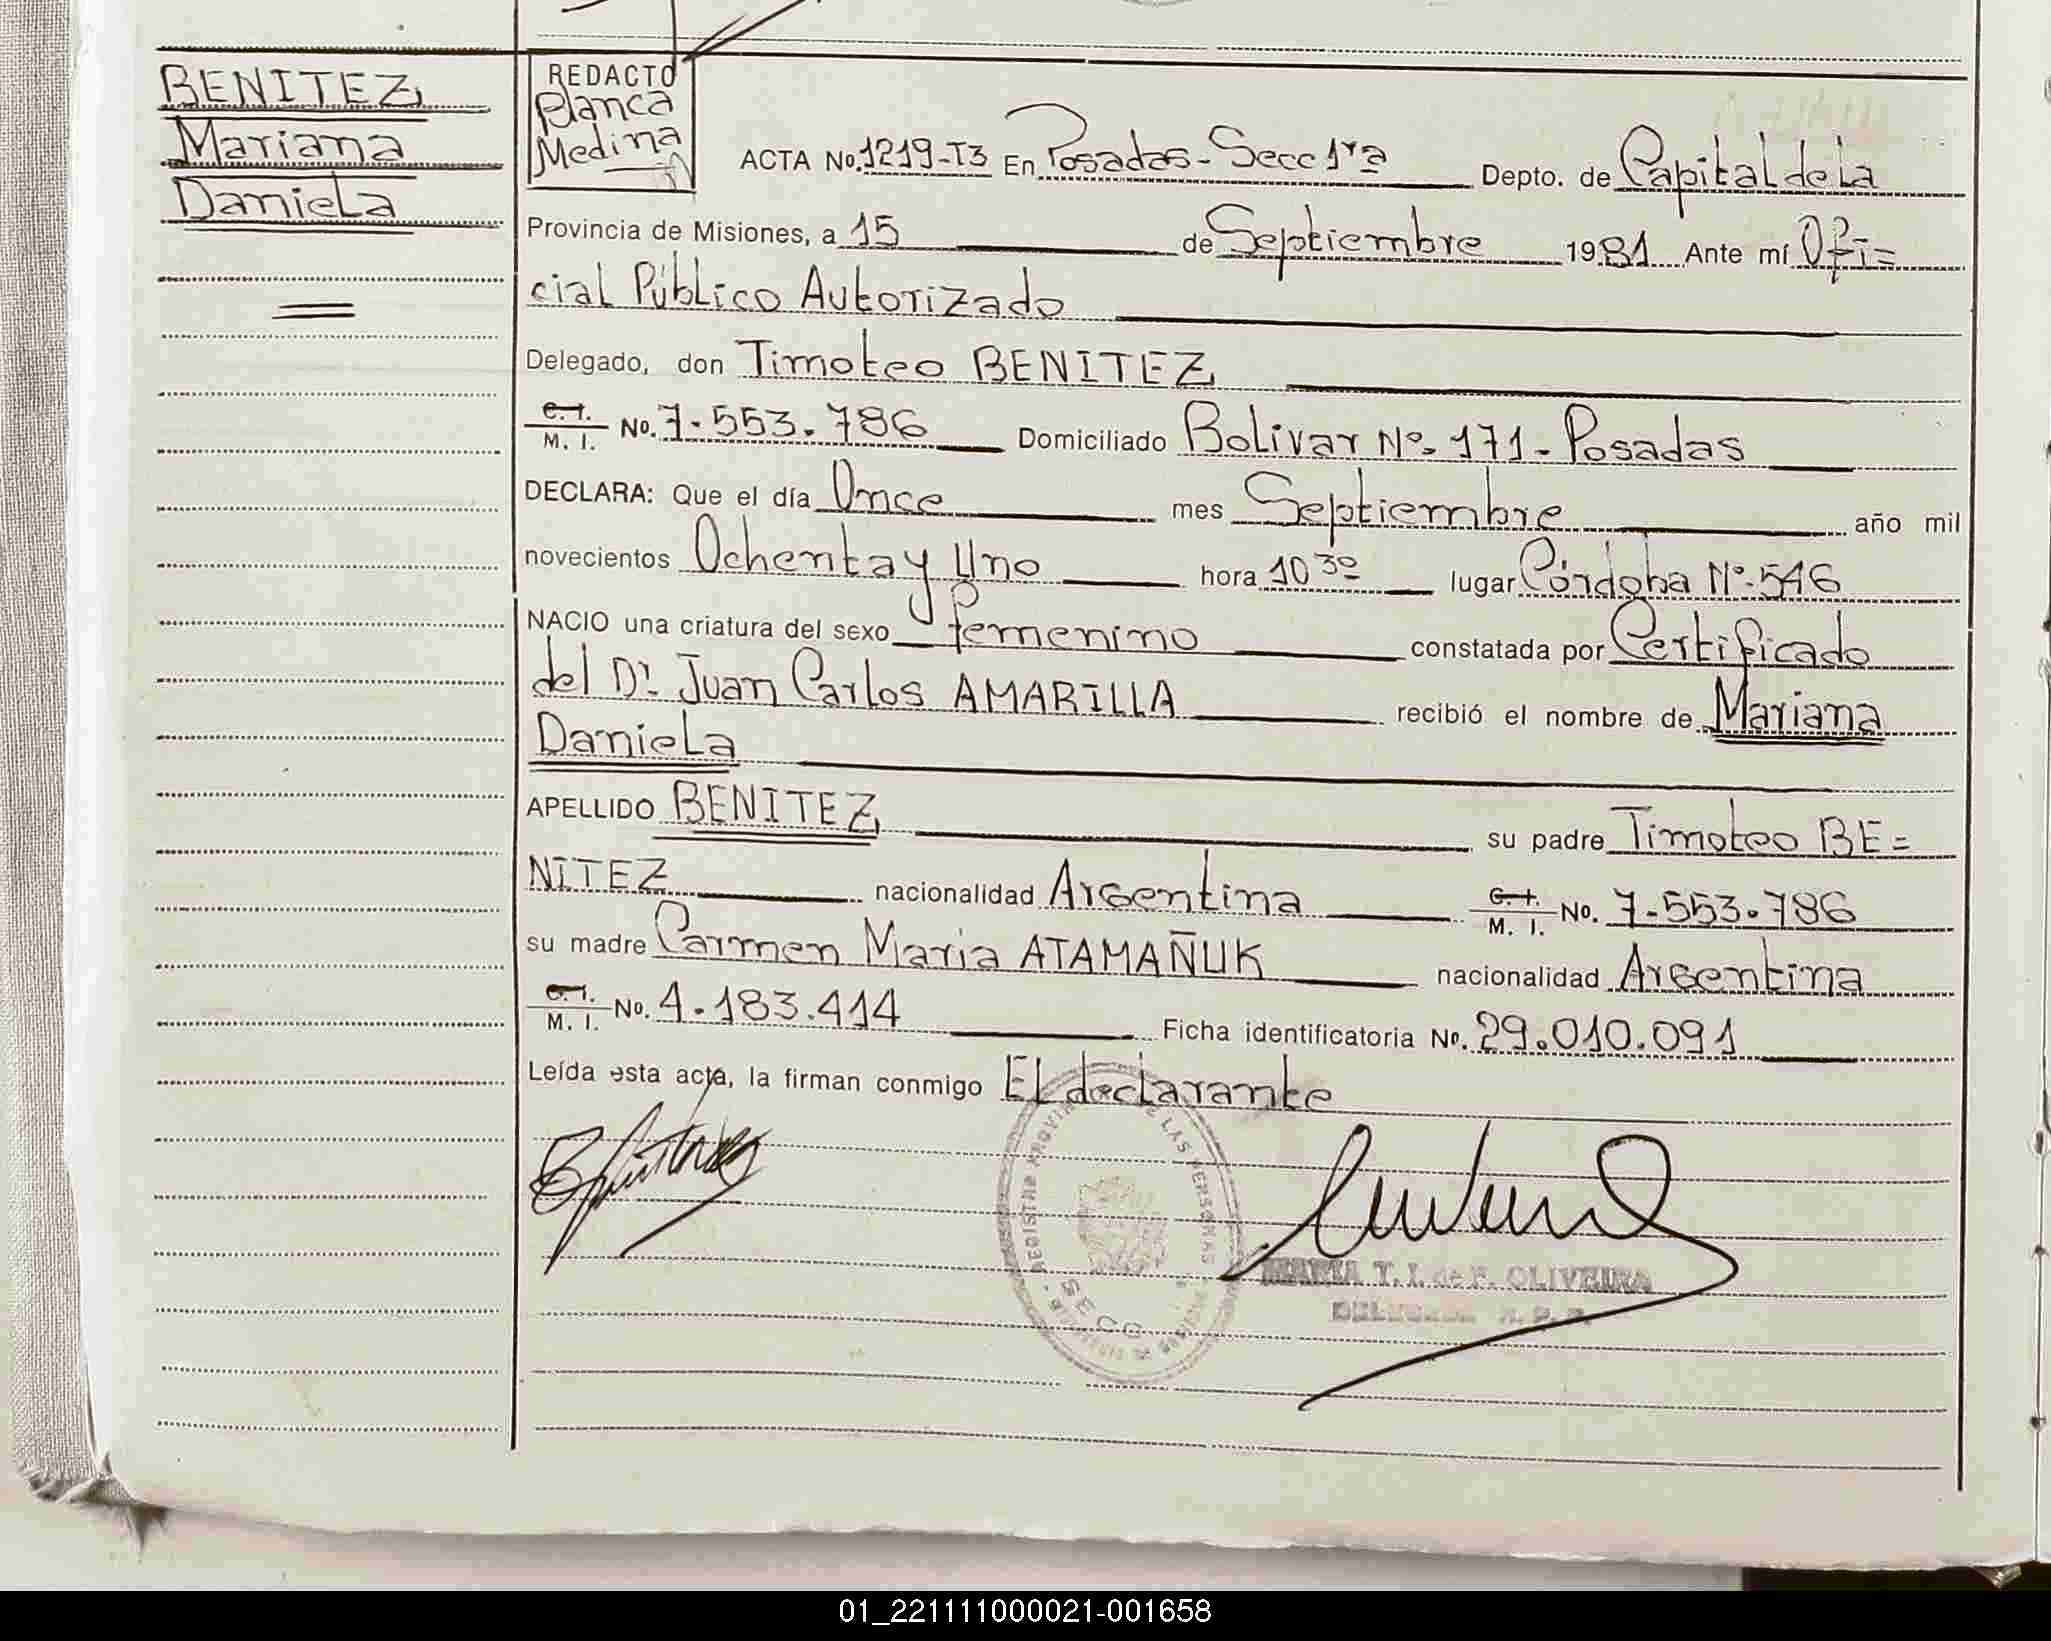 BENITEZ
Mariana
Daniela
REDACTO
Blanca
Medina
ACTA No. 1219-T3 En Posadas - Secc 1ra Depto. de Capital de la
Provincia de Misiones, a 15 de Septiembre 1981 Ante mí Ofi=
cial Público Autorizado
Delegado, don Timoteo BENITEZ
C. I. M. I. No. 7.553.786 Domiciliado Bolivar Nº 171 - Posadas
DECLARA: Que el día Once mes Septiembre año mil
novecientos Ochenta y Uno hora 10 30 lugar Córdoba Nº 546
NACIO una criatura del sexo femenino constatada por Certificado
del Dr. Juan Carlos AMARILLA recibió el nombre de Mariana
Daniela
APELLIDO BENITEZ su padre Timoteo BE=
NITEZ nacionalidad Argentina C. I. M. I. No. 7.553.786
su madre Carmen Maria ATAMAÑUK nacionalidad Argentina
C. I. M. I. No. 4.183.414 Ficha identificatoria No. 29.010.091
Leída esta acta, la firman conmigo El declarante
REGISTRO LAS PERSONAS
SECC
MARIA T. I. de F. OLIVEIRA
01_221111000021-001658